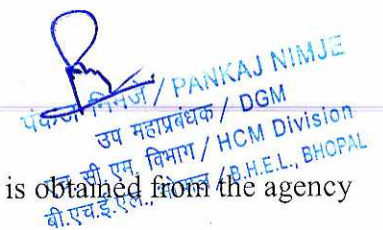 पंकज निमजे / PANKAJ NIMJE
उप महाप्रबंधक / DGM
एच. सी. एम. विभाग / HCM Division
बी.एच.ई.एल., भोपाल / B.H.E.L., BHOPAL
is obtained from the agency